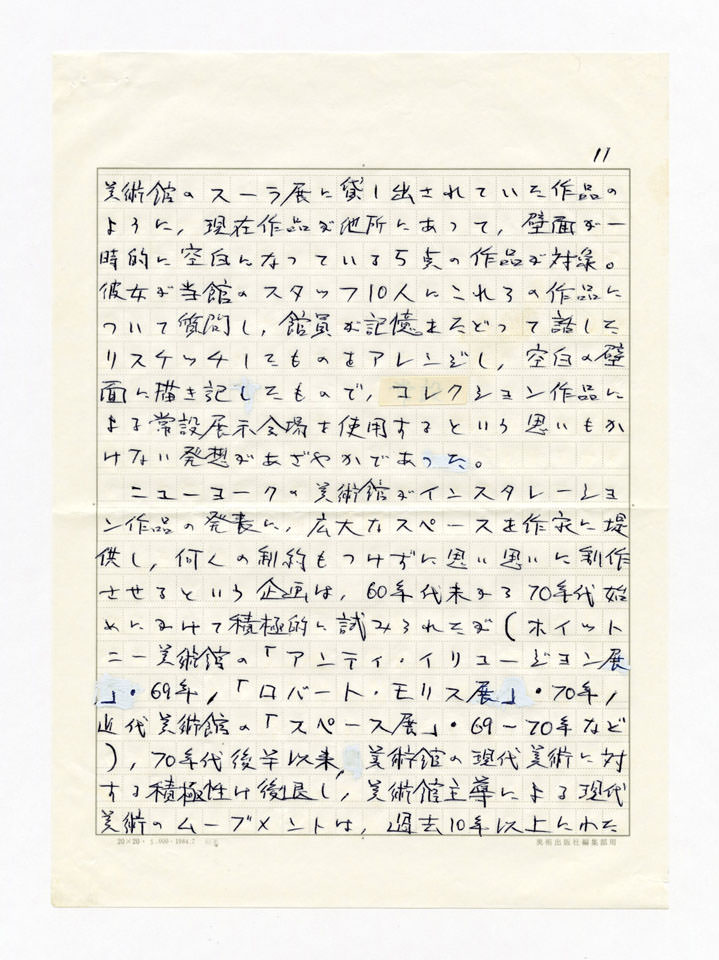 11
美術館のスーラ展に貸し出されていた作品の
ように，現在作品が他所にあって，壁面が一
時的に空白になっている5点の作品が対象。
彼女が当館のスタッフ10人にこれらの作品に
ついて質問し，館員が記憶をたどって話した
りスケッチしたものをアレンジし，空白の壁
面に描き記したもので，コレクション作品に
よる常設展示会場を使用するという思いもか
けない発想があざやかであった。
ニューヨークの美術館がインスタレーショ
ン作品の発表に，広大なスペースを作家に提
供し，何らの制約もつけずに思い思いに制作
させるという企画は，60年代末から70年代始
めにかけて積極的に試みられたが（ホイット
ニー美術館の「アンティ・イリュージョン展
」・69年，「ロバート・モリス展」・70年，
近代美術館の「スペース展」・69〜70年など
），70年代後半以来，美術館の現代美術に対
する積極性は後退し，美術館主導による現代
美術のムーブメントは，過去10年以上にわた
20×20・ 1984.7
美術出版社編集部用